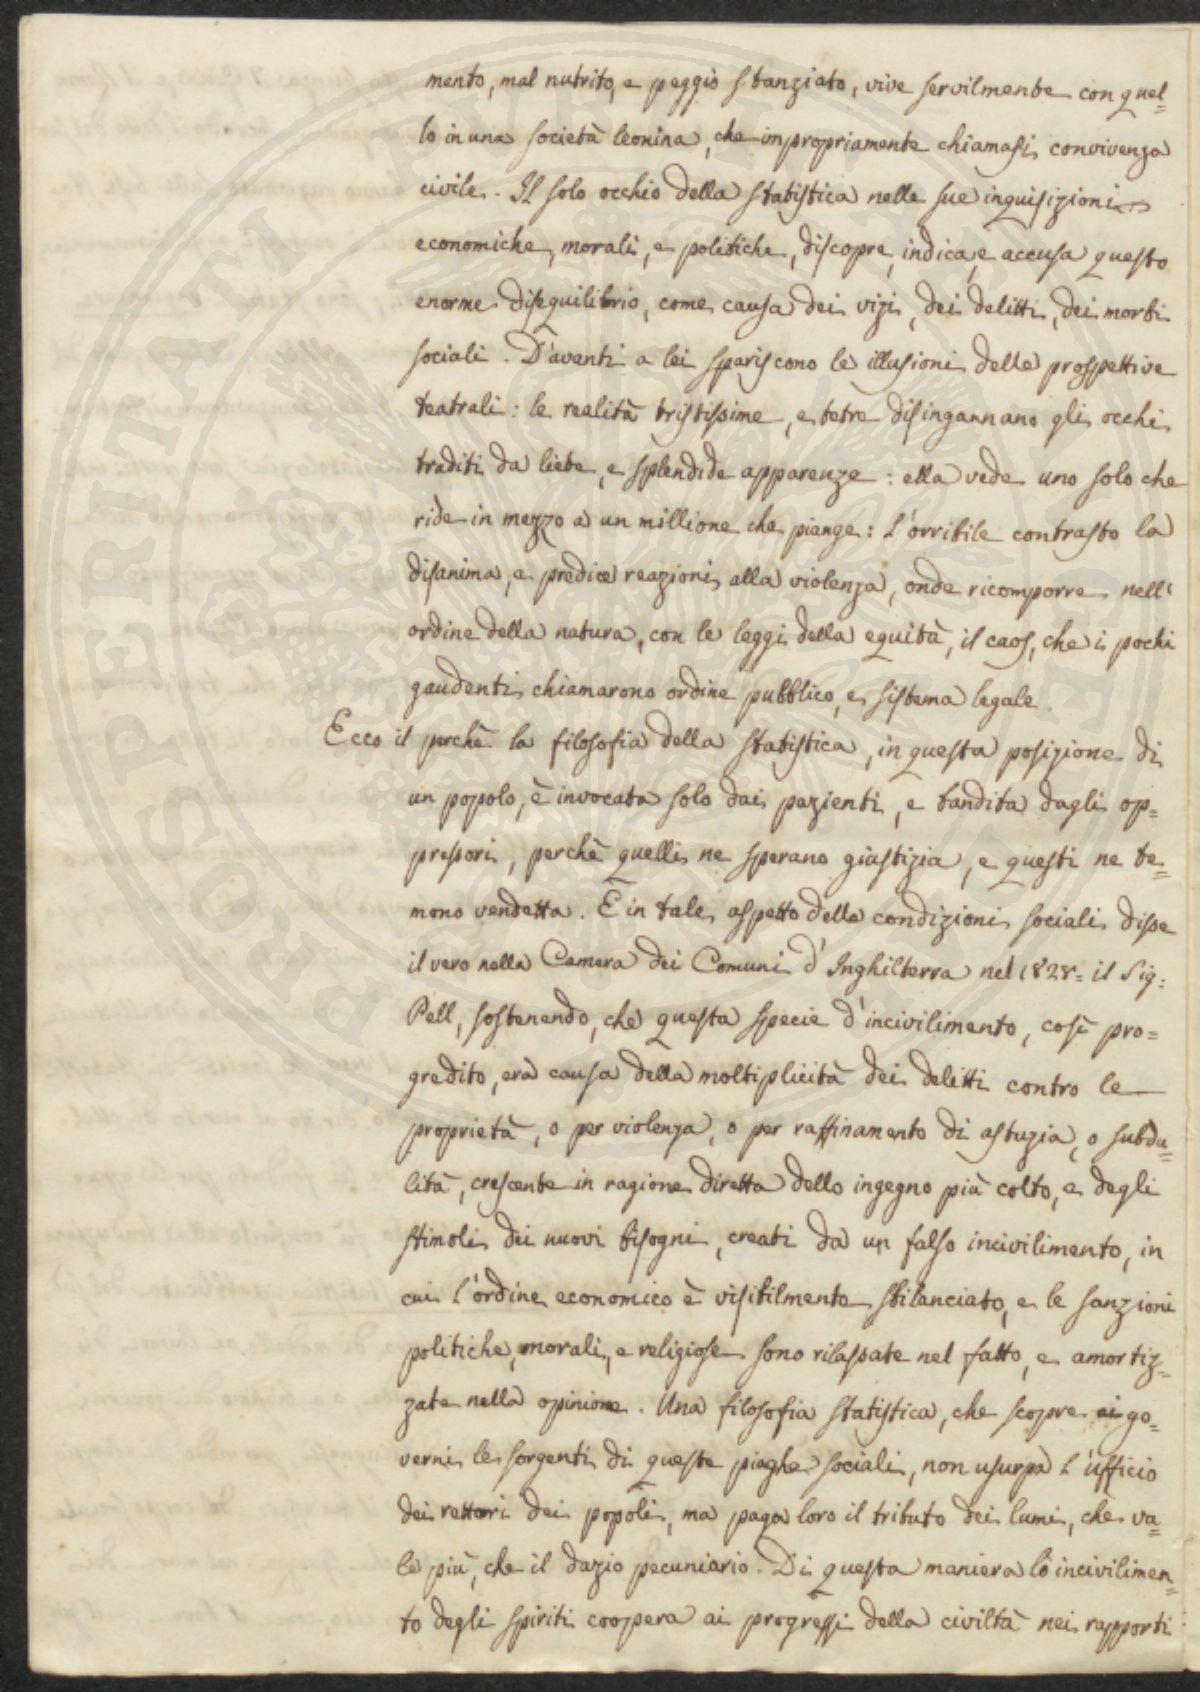 mento, mal nutrito, e peggio stanziato, vive servilmente con quel=
lo in una società leonina, che impropriamente chiamasi convivenza
civile. Il solo occhio della statistica nelle sue inquisizioni
economiche, morali, e politiche, discopre, indica, e accusa questo
enorme disequilibrio, come causa dei vizi, dei delitti, dei morbi
sociali. D'aventi a lei spariscono le illusioni delle prospettive
teatrali: le realità tristissime, e tetre disingannano gli occhi
traditi da liete, e splendide apparenze: ella vede uno solo che
ride in mezzo a un millione che piange: l'orribile contrasto la
disanima, e predice reazioni alla violenza, onde ricomporre nell'
ordine della natura, con le leggi della equità, il caos, che i pochi
gaudenti chiamarono ordine pubblico, e sistema legale.
Ecco il perchè la filosofia della statistica, in questa posizione di
un popolo, è invocata solo dai pazienti, e bandita dagli op=
pressori, perchè quelli ne sperano giustizia, e questi ne te=
mono vendetta. E in tale aspetto delle condizioni sociali disse
il vero nella Camera dei Comuni d'Inghilterra nel 1828= il Sig:
Pell, sostenendo, che questa specie d'incivilimento, così pro=
gredito, era causa della moltiplicità dei delitti contro le
proprietà, o per violenza, o per raffinamento di astuzia, o subdo=
lità, crescente in ragione diretta dello ingegno più colto, e degli
stimoli dei nuovi bisogni, creati da un falso incivilimento, in
cui l'ordine economico è visibilmente sbilanciato, e le sanzioni
politiche, morali, e religiose sono rilassate nel fatto, e amortiz=
zate nella opinione. Una filosofia statistica, che scopre ai go=
verni le sorgenti di queste piaghe sociali, non usurpa l'ufficio
dei rettori dei popoli, ma paga loro il tributo dei lumi, che va=
le più, che il dazio pecuniario. Di questa maniera lo incivilimen=
to degli spiriti coopera ai progressi della civiltà nei rapporti
PERITI